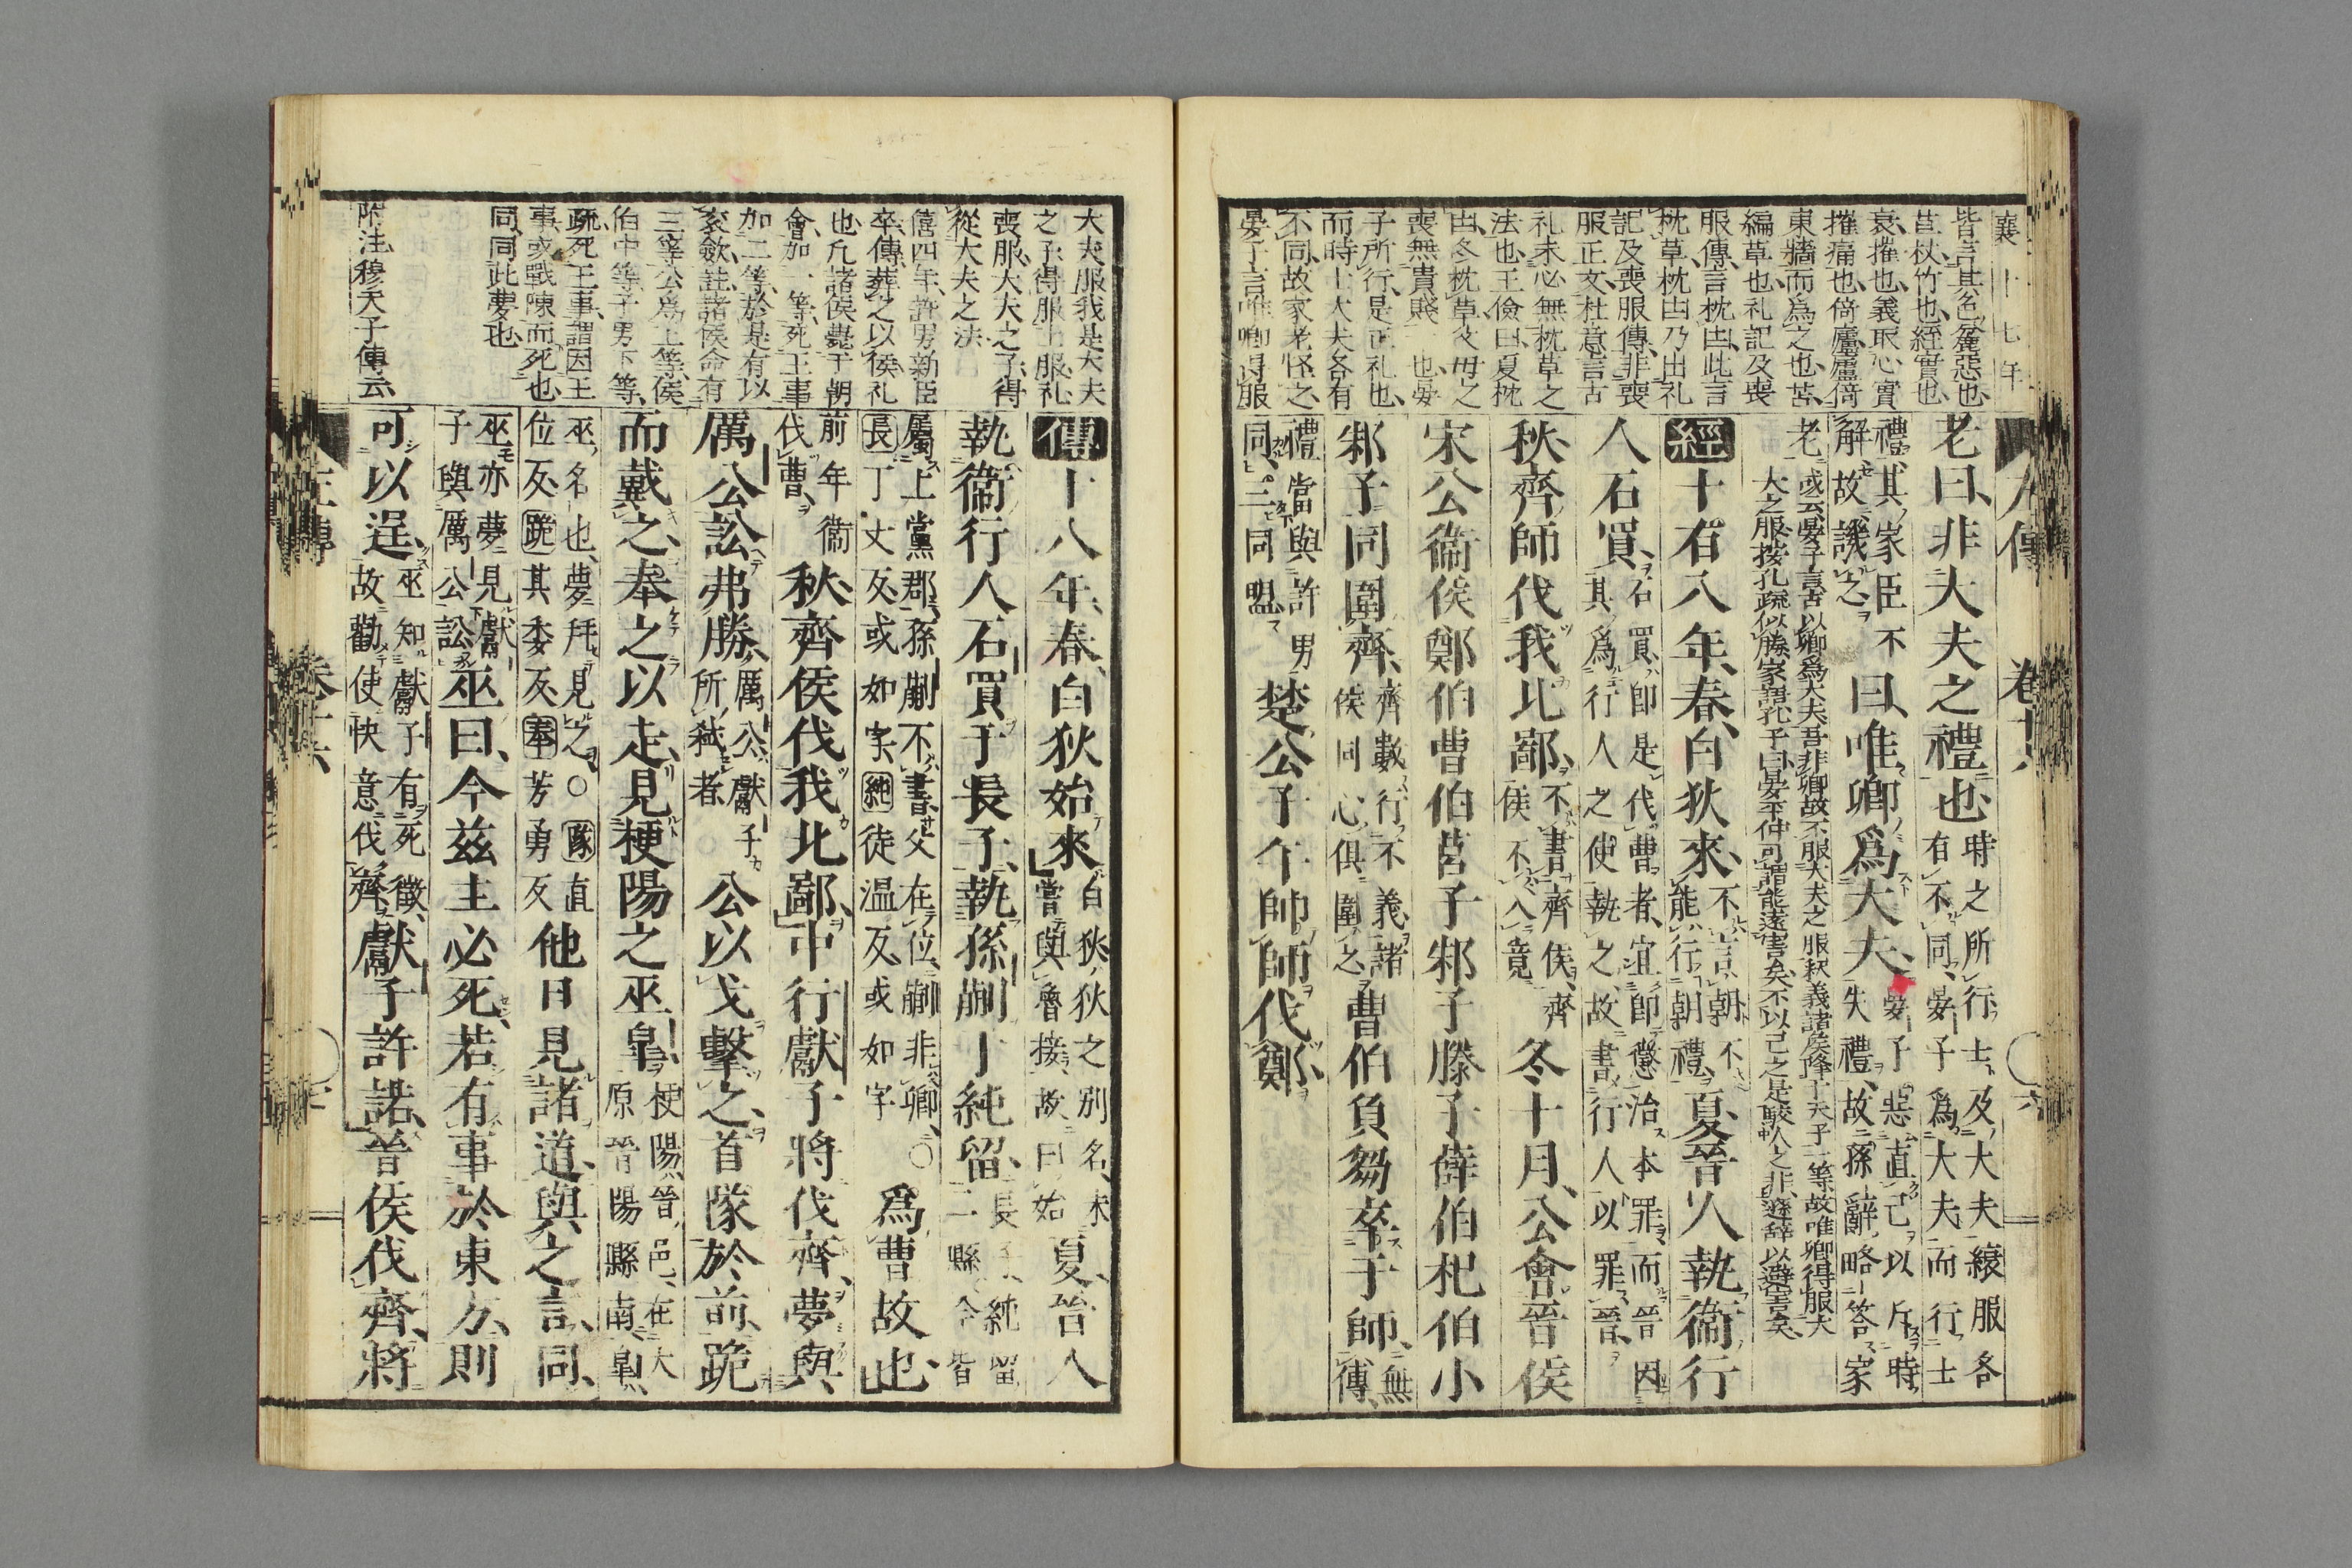 襄十七年
皆言其色麁惡也
苴杖竹也絰實也
衰摧也義取心實
摧痛也倚廬廬倚
東牆而為之也苫
編草也礼記及喪
服傳言枕凷此言
枕草枕凷乃出礼
記及喪服傳非喪
服正文杜意言古
礼未必無枕草之
法也王儉曰夏枕
凷冬枕草父母之
喪無貴賤一也晏
子所行是正礼也
而時士大夫各有
不同故家老怪之
晏子言唯卿得服
老曰非大夫之禮也時之所行士及大夫縗服各有不同晏子為大夫而行士
禮其家臣不解故譏之曰唯卿爲大夫晏子惡直己以斥時失禮故孫辭略答家
老或云晏子言古以卿爲大夫吾非卿故不服大夫之服秋義諸侯降于天子一等故唯卿得服大
夫之服按孔疏似勝家語孔子曰晏平仲可謂能遠害矣不以己之是駁人之非遜辞以避害矣
經十有八年春白狄來不言朝不能行朝禮夏晉人執衞行
人石買石買卽是伐曹者宜卽懲治本罪而晉因其爲行人之使執之故書行人以罪晉
秋齊師伐我北鄙不書齊侯齊侯不入竟冬十月公會晉侯
宋公衞侯鄭伯曹伯莒子邾子滕子薛伯杞伯小
邾子同圍齊齊數行不義諸侯同心俱圍之曹伯負芻卒于師無傳
禮當與許男同三同盟楚公子午帥師伐鄭
大夫服我是大夫
之子得服士服礼
喪服大夫之子得
從大夫之法
僖四年許男新臣
卒傳葬之以侯礼
也凡諸侯薨于朝
會加一等死王事
加二等於是有以
衮斂註諸侯命有
三等公為上等侯
伯中等子男下等
疏死王事謂因王
事或戰陳而死也
同同此夢也
附注穆天子傳云
傳十八年春白狄始來白狄狄之別名未嘗與魯接故曰始夏晉人
執衞行人石買于長子執孫蒯于純留長子純留二縣今皆
屬上黨郡孫蒯不書父在位蒯非卿○長丁丈反或如字純徒温反或如字爲曹故也
前年衞伐曹秋齊侯伐我北鄙中行獻子將伐齊夢與
厲公訟弗勝厲公獻子所弑者公以戈擊之首隊於前跪
而戴之奉之以走見梗陽之巫皐梗陽晉邑在大原晉陽縣南皐
巫名也夢幷見之○隊直位反跪其委反奉芳勇反他日見諸道與之言同
巫亦夢見獻子與厲公訟巫曰今兹主必死若有事於東方則
可以逞巫知獻子有死徵故勸使快意伐齊獻子許諾晉侯伐齊將